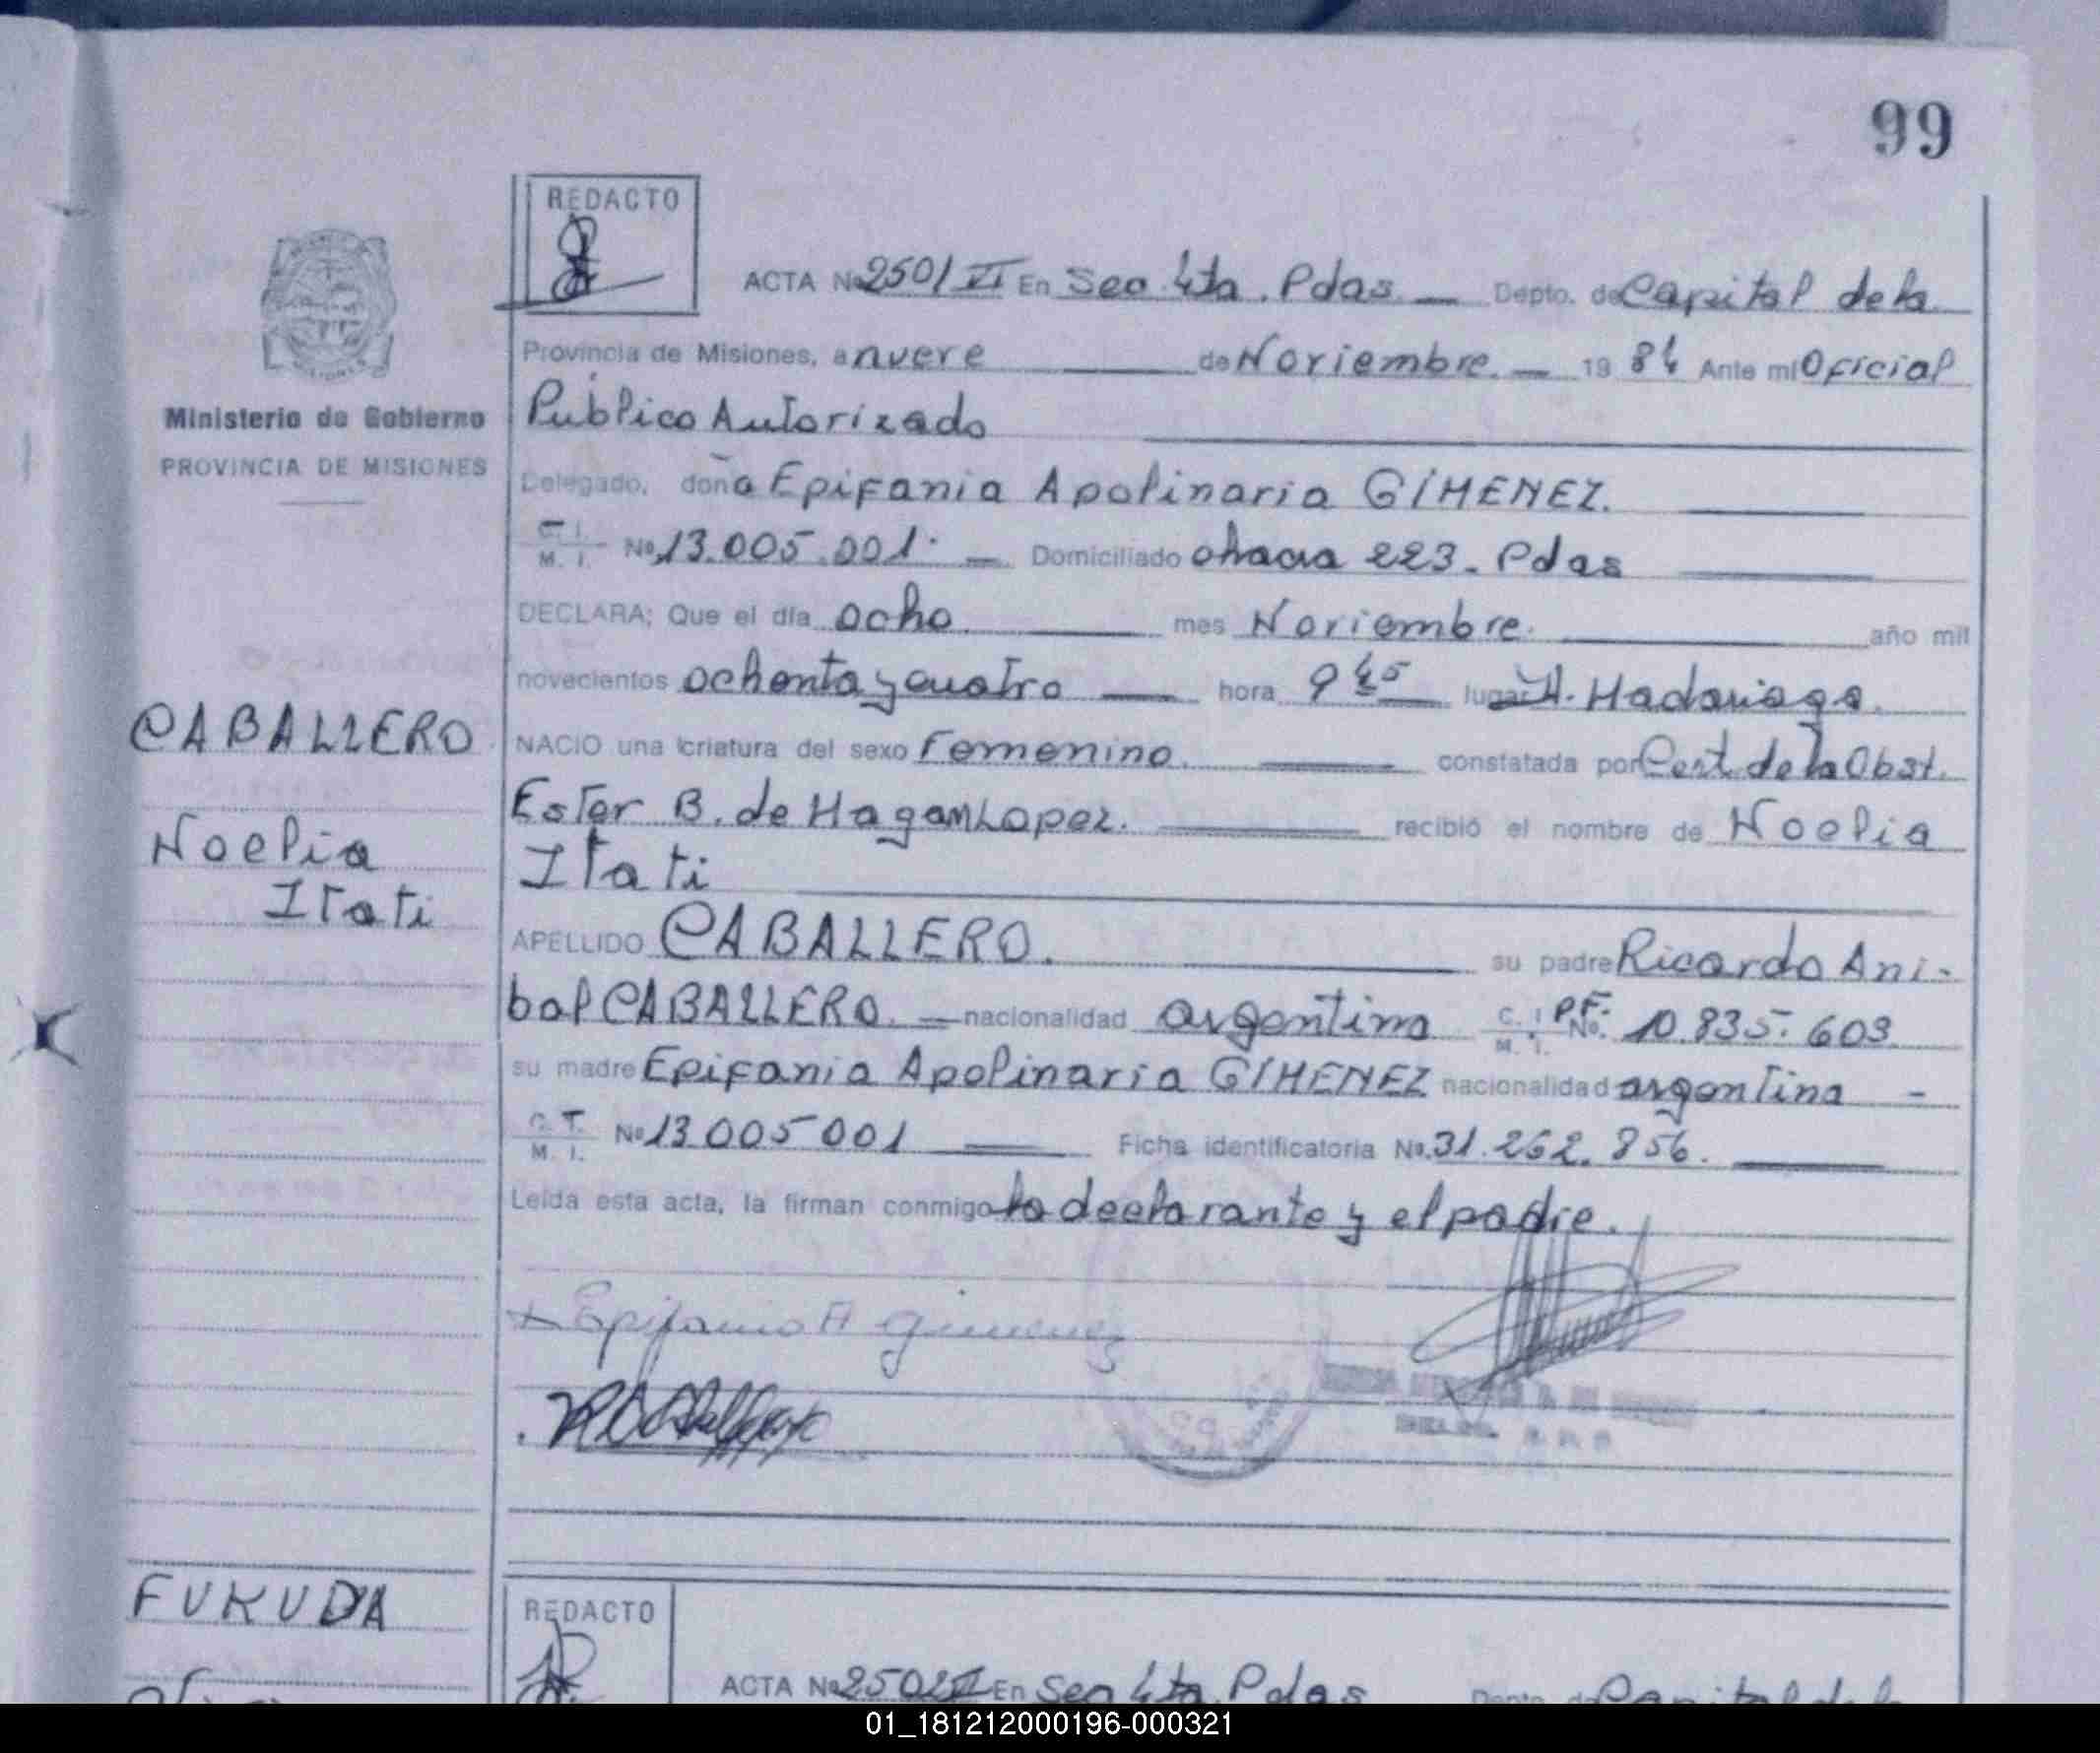 99
REDACTO
ACTA Nº 2501 VI En Sec 4ta. Pdas. Depto. de Capital de la
Provincia de Misiones, a nueve de Noviembre. 19 84 Ante mi Oficial
Ministerio de Gobierno
PROVINCIA DE MISIONES
Público Autorizado
Delegado, doña Epifania Apolinaria GIMENEZ.
C. I. M. I. Nº 13.005.001. Domiciliado chacra 223. Pdas
DECLARA; Que el día ocho. mes Noviembre. año mil
novecientos ochenta y cuatro hora 9 45 lugar H. Madariaga.
CABALLERO
NACIO una criatura del sexo Femenino. constatada por Cert. de la Obst.
Ester B. de Hagan Lopez. recibió el nombre de Noelia
Noelia
Itati
Itati
APELLIDO CABALLERO. su padre Ricardo Ani-
bal CABALLERO. nacionalidad argentino C. I. M. I. P.F. Nº. 10.835.603
su madre Epifania Apolinaria GIMENEZ nacionalidad argentina -
C. I. M. I. Nº 13 005 001 Ficha identificatoria Nº. 31.262.856.
Leída esta acta, la firman conmigo la declarante y el padre.
Epifania A Gimenez
FUKUDA
REDACTO
ACTA Nº 2502 VI En Sec 4ta Pdas Depto. de Capital de la
01_181212000196-000321